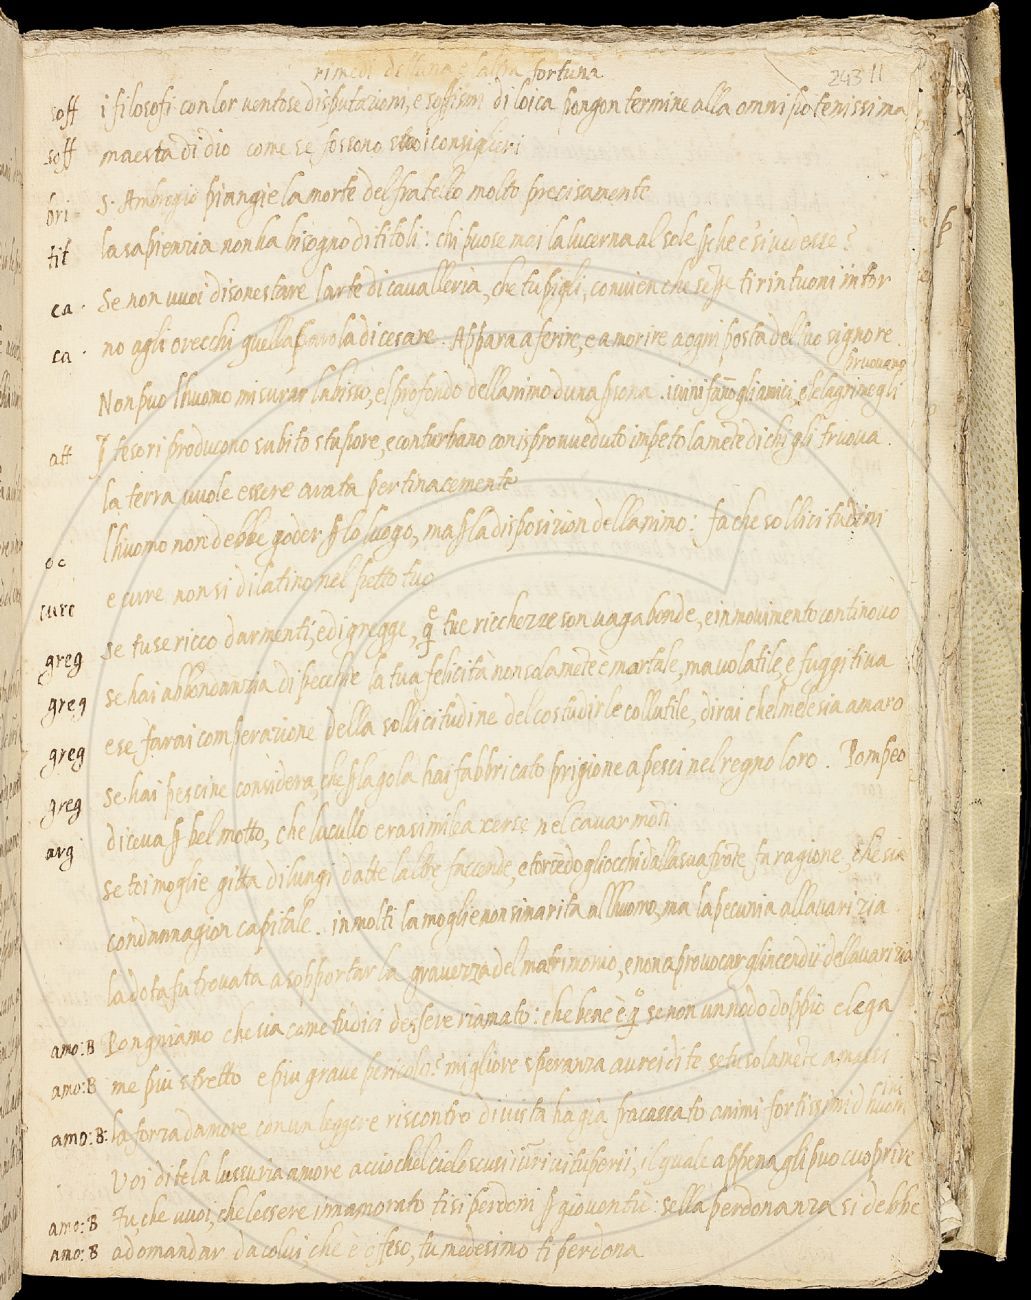 rimedi dell'una e l'altra fortuna
243 11
soff i filosofi con lor ventose disputazioni, e soffismi di loica pongon termine alla omnipotenissima
soff maesta di dio come se fossono suoi consiglieri
bri S. Ambrogio piangie la morte del fratello molto precisamente
tit la sapienzia non ha bisogno di titoli: chi puose mai la lucerna al sole p che e si vedesse?
ca. Se non vuoi disonestare larte di cavalleria, che tu pigli, convien che sepe ti rintuoni infor
ca. no agli orecchi quella parola di cesare. Appara a ferire, e a morire a ogni posta del tuo signore.
pruovano
Non puo lhuomo misurar labisso, el profondo dellanimo duna psona. i vini fano gli amici, e le lagrime gli
att I tesori producono subito stupore, e conturbano con isproveduto impeto la mete di chi gli truova.
la terra vuole essere arata pertinacemente
oc lhuomo non debbe goder p lo luogo, ma p la disposizion dellanimo: fa che sollicitudini
cure e cure non si dilatino nel petto tuo
greg se tu se ricco darmenti, e di gregge, q e tue ricchezze son vagabonde, e in movimento continovo
greg se hai abbondanzia di pecchie la tua felicità non solamete e mortale, ma volatile, e fuggitiva
greg e se farai comperazione della sollicitudine del costudirle col lutile, dirai chel mele sia amaro
greg se hai pescine considera, che p la gola hai fabbricato prigione a pesci nel regno loro. Pompeo
arg diceva p bel motto, che lucullo era simile a xerse nel cavar moti
se toi moglie gitta di lungi da tte laltre faccende, e torcedo gli occhi dalla sua frote fa ragione, che sia
condannagion capitale. in molti la moglie non si marita allhuomo, ma la pecunia allavarizia
la dota fu trovata a sopportar la gravezza del matrimonio, e non a provocar glincendii dellavarizia
amo:B Pongniamo che sia come tu dici dessere riamato: che bene è q se non un nodo doppio e lega
amo:B me piu stretto e piu grave pericolo? migliore speranza aurei di te se tu solamete amassi
amo:B: la forza damore con un leggere riscontro di vista ha già fracassato animi fortissimi d huomini
Voi dite la lussuria amore accio chel cielo scusi i vri vituperii, il quale appena gli puo cuoprire
amo:B Tu, che vuoi, che lessere innamorato ti si perdoni p gioventù: se lla perdonanza si debbe
amo:B adomandar da colui, che è offeso, tu medesimo ti perdona